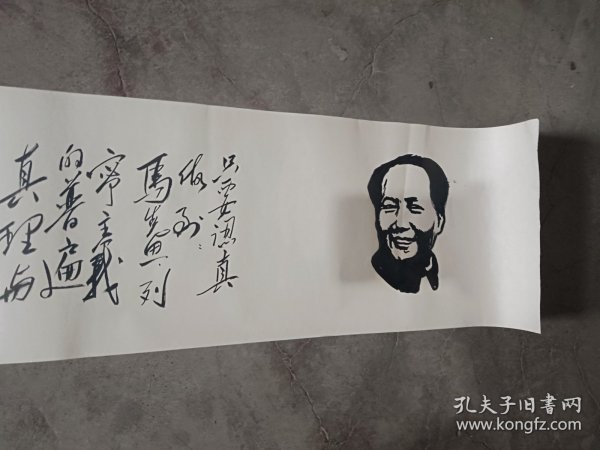 只要認真
做到：
馬恩、列
寧主義
的普遍
真理与
孔夫子旧書网
www.kongfz.com